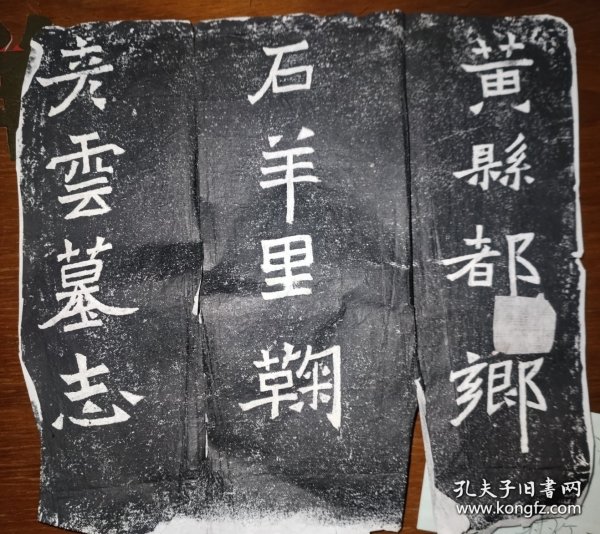 黄縣都鄉
石羊里鞠
彦雲墓志
孔夫子旧书网
www.kongfz.com